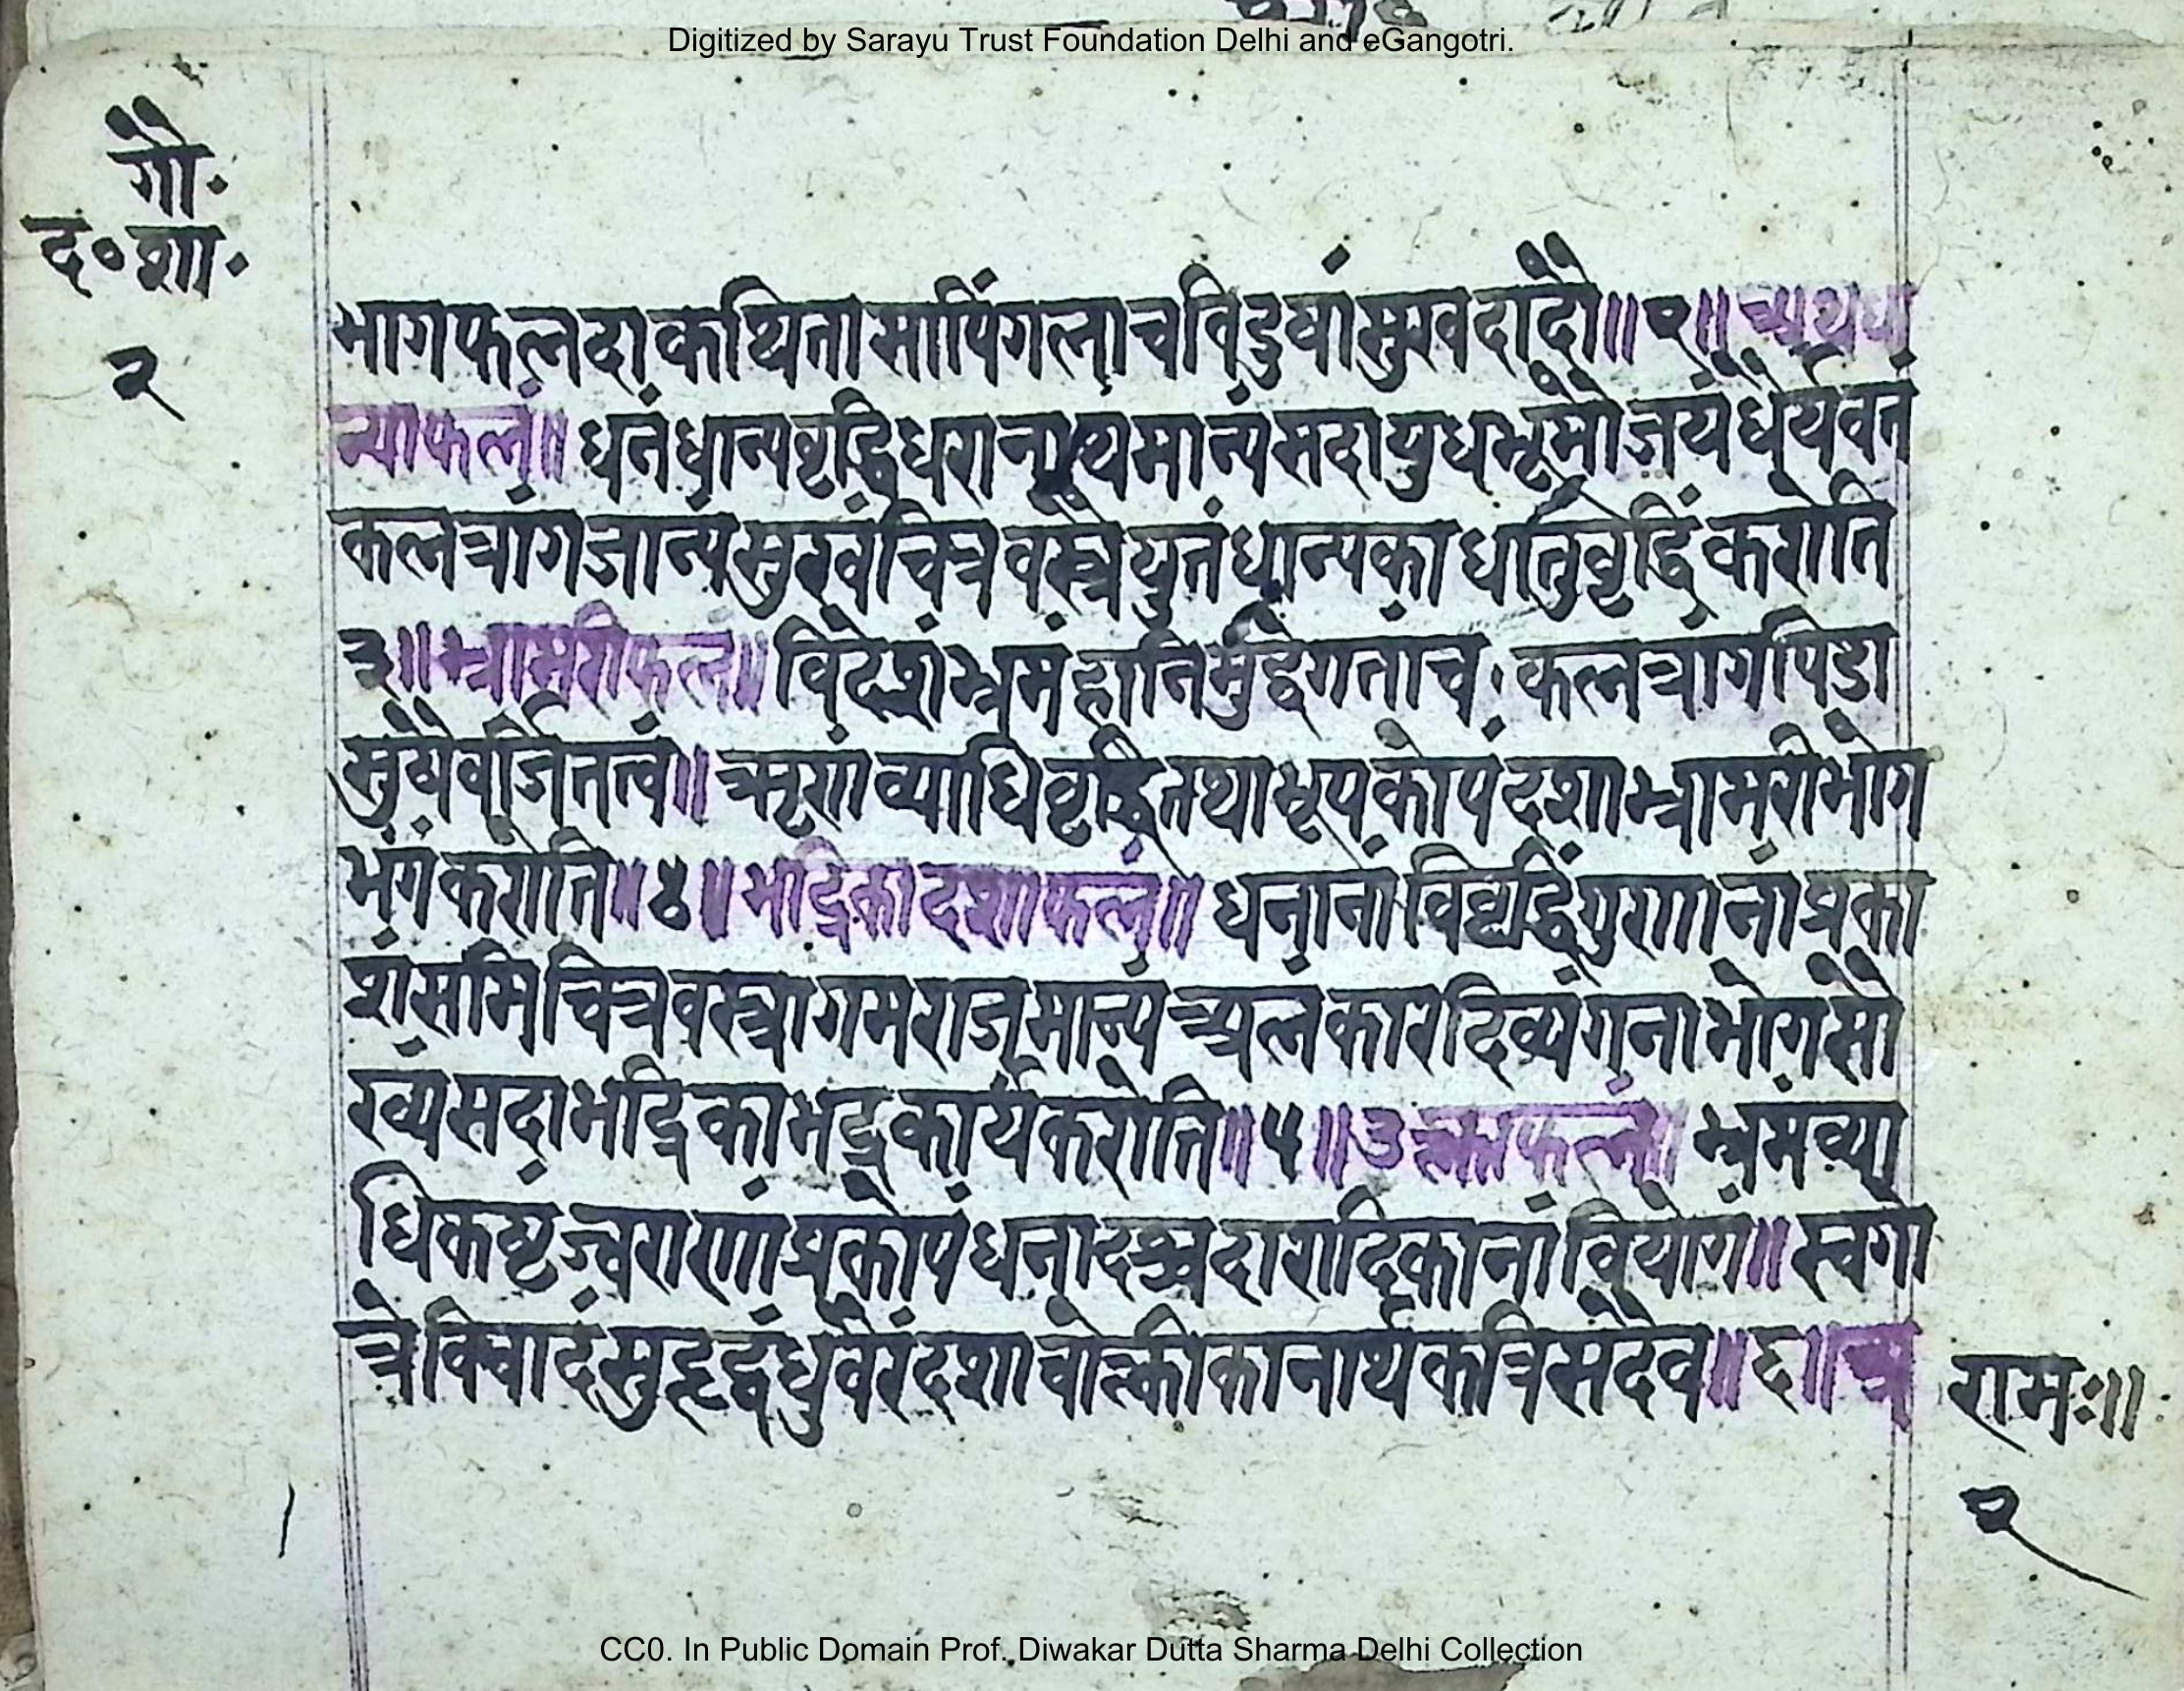 Digitized by Sarayu Trust Foundation Delhi and eGangotri.
गौ॰
द॰शा॰
२
भागफलदाकथितासापिंगलाचविदुषांसुखदादौ॥२॥अथधा
न्याफलं॥धनंधान्यवृद्धिधरानाथमान्यंसदायुधभूमौजयंधैर्यवतं
कलत्रांगजान्यंसुखंचित्रवस्त्रैयुतंधान्यकाधातुवृद्धिंकरोति
३॥भ्रामरीफलं॥विदेशंभ्रमंहानिमुद्वेगतांच॰कलत्रांगपिडा
सुषैर्वर्जितत्वं॥ऋणंव्याधिवृद्धितथाभूपकोपंदशाभ्रामरीभोग
भंगंकरोति॥४॥भद्रिकादशाफलं॥धनानांविवृद्धिंगुणानांप्रका
शंसमिचित्रवस्त्रागमराजमान्यंअलंकारदिव्यंगनाभोगसौ
ख्यंसदाभद्रिकाभद्रकार्यंकरोति॥५॥उल्काफलं॥भ्रमंव्या
धिकष्टंज्वराणांप्रकोपंधनादश्चदारादिकानांवियोगं॥स्वगो
त्रेविवादंसुहृद्वंधुवैरंदशाचोल्कीकानार्थकत्रिसदैव॥६॥अ
रामः॥
२
CC0. In Public Domain Prof. Diwakar Dutta Sharma Delhi Collection